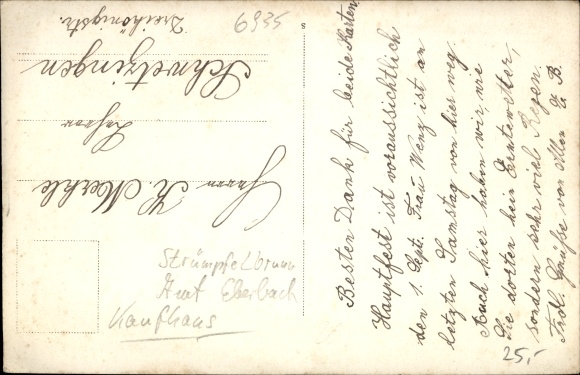 Besten Dank für beide Karten
Hauptfest ist voraussichtlich
den 1. Sept. Frau Weny ist am
letzten Samstag von hier weg.
Auch hier haben wir, wie
Sie dorten kein Erntewetter,
sondern sehr viel Regen.
Frdl. Grüße von Allen E. B.
Herrn K. Merkle
Lehrer
Schwetzingen
Dreikönigstr.
6935
Strümpfelbrunn
Amt Eberbach
Kaufhaus
25,-